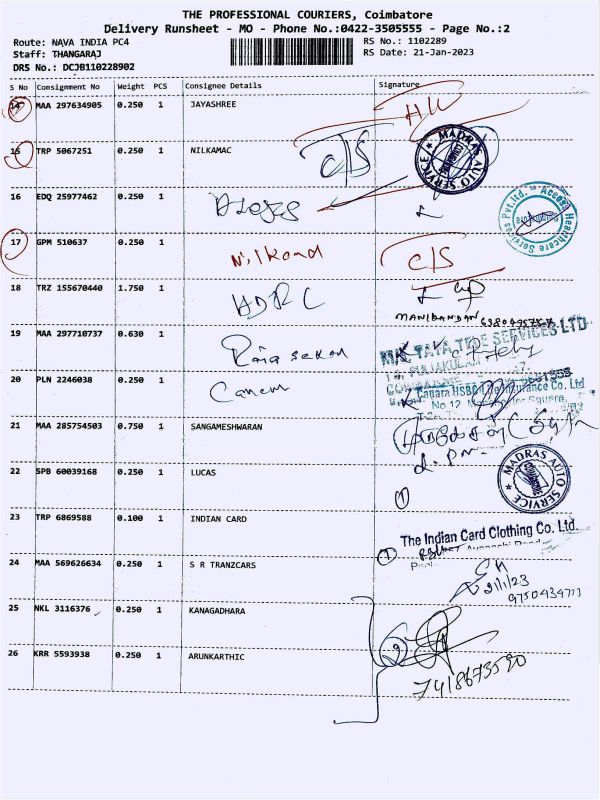 THE PROFESSIONAL COURIERS, Coimbatore
Delivery Runsheet - MO - Phone No.:0422-3505555 - Page No.:2
Route: NAVA INDIA PC4
RS No.: 1102289
Staff: THANGARAJ
RS Date: 21-Jan-2023
DRS No.: DCJB110228902
S No Consignment No Weight PCS Consignee Details Signature
14 MAA 297634905 0.250 1 JAYASHREE
15 TRP 5067251 0.250 1 NILKAMAC
MADRAS AUTO SERVICE
16 EDQ 25977462 0.250 1
Access Healthcare Services Pvt.ltd.
17 GPM 510637 0.250 1 Nilkand
18 TRZ 155670440 1.750 1 HDRC
MANIKANDAN
19 MAA 297710737 0.630 1 Rajasekar
TATA TELE SERVICES LTD
20 PLN 2246038 0.250 1
Canara HSBC Life Insurance Co. Ltd
No.12
Square,
21 MAA 285754503 0.750 1 SANGAMESHWARAN
22 SPB 60039168 0.250 1 LUCAS
MADRAS AUTO SERVICE
23 TRP 6869588 0.100 1 INDIAN CARD
The Indian Card Clothing Co. Ltd.
24 MAA 569626634 0.250 1 S R TRANZCARS
21/1/23
25 NKL 3116376 0.250 1 KANAGADHARA
26 KRR 5593938 0.250 1 ARUNKARTHIC
7418673590